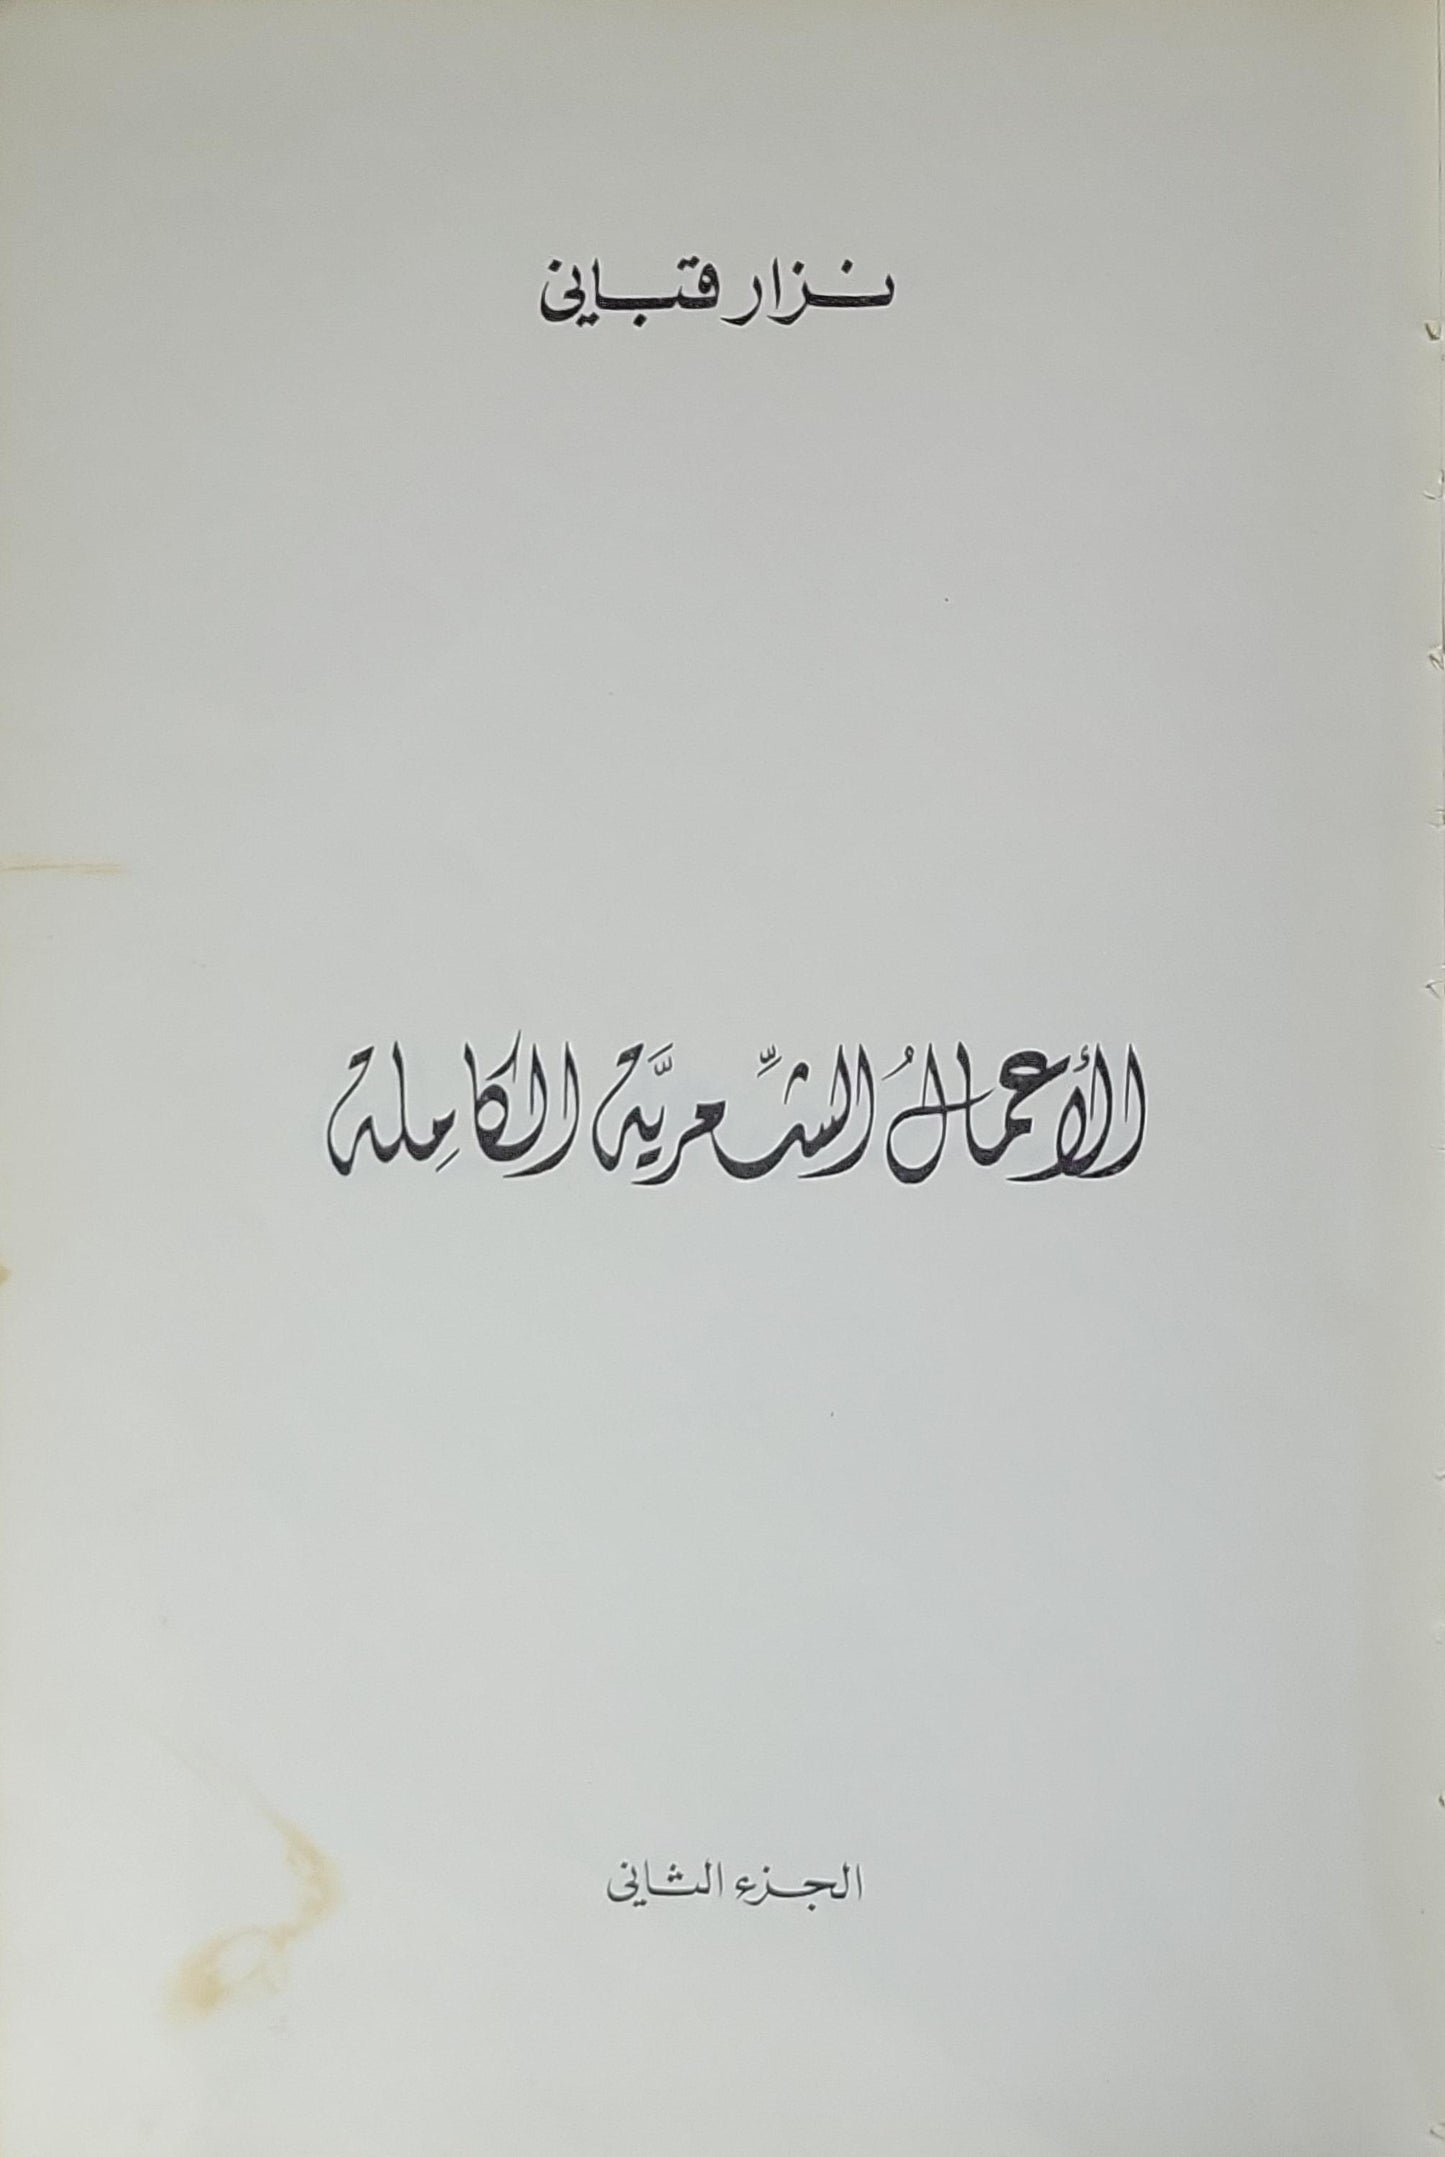 نزار قتباني
الأعمالُ الشِّعريَّة الكَامِلة
الجزء الثاني